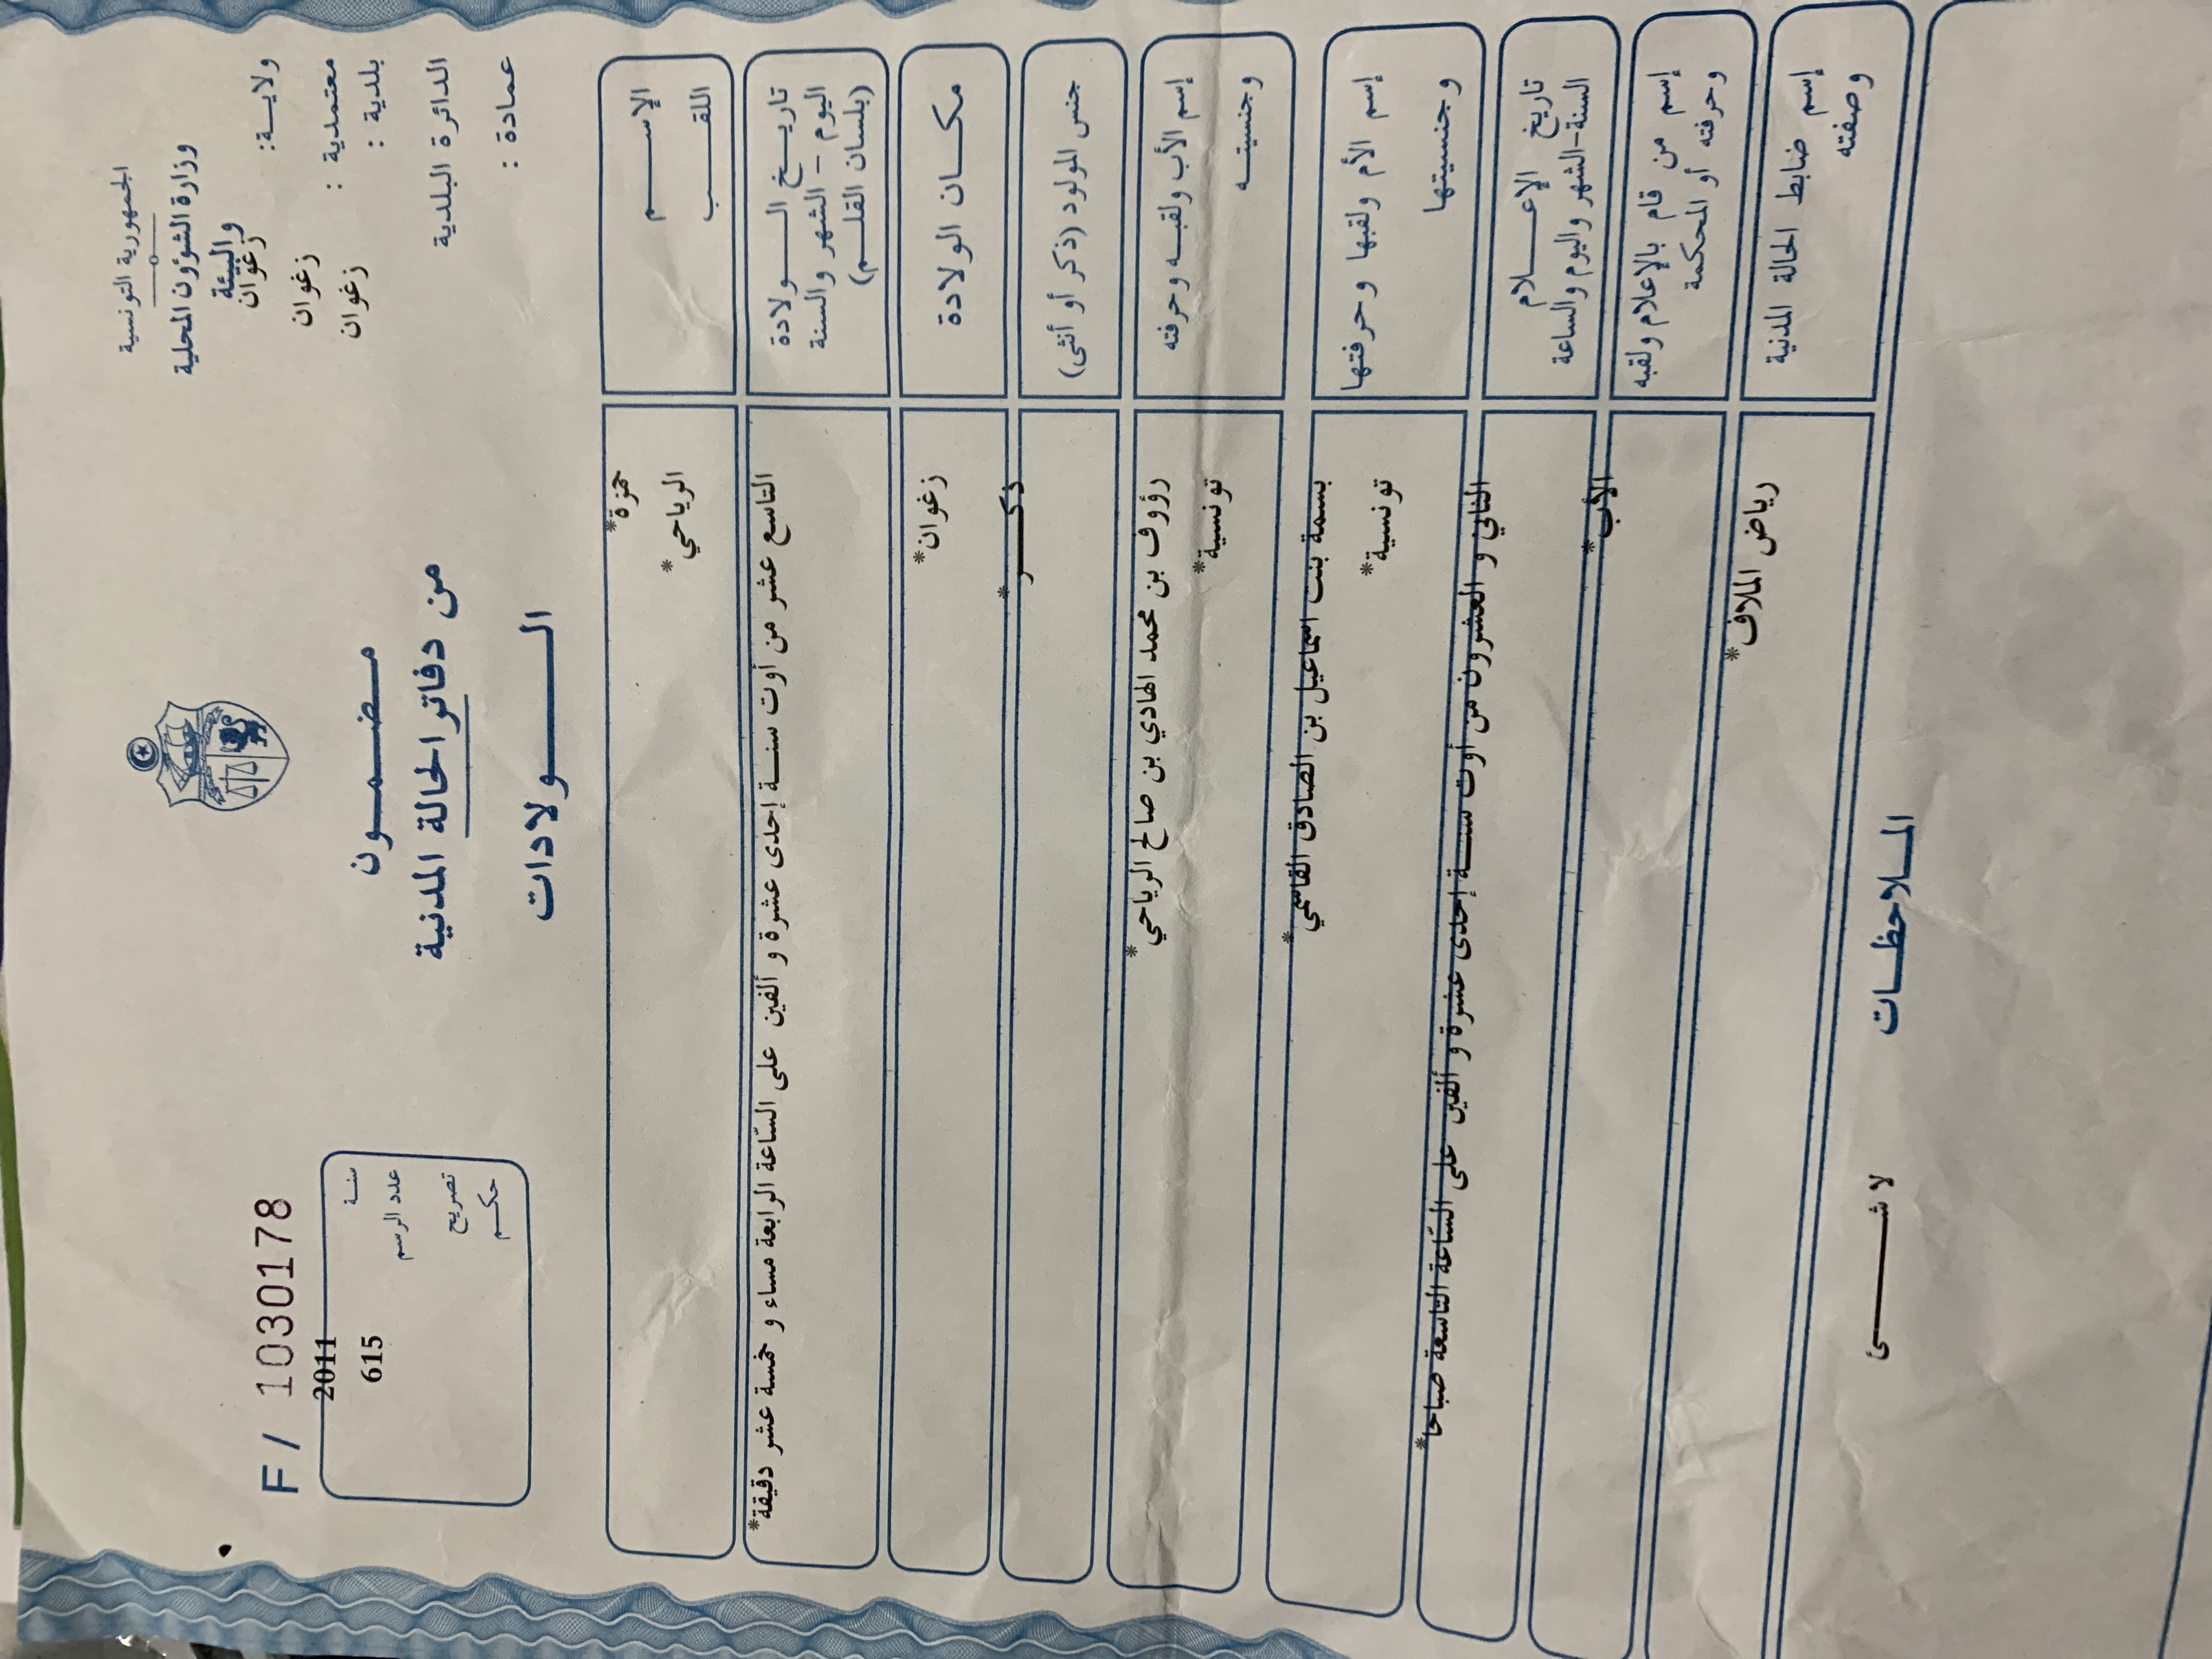 الجمهورية التونسية
وزارة الشؤون المحلية
والبيئة
ولايـة: زغوان
معتمدية : زغوان
بلدية : زغوان
الدائرة البلدية
عمادة :
مضمون
من دفاتر الحالة المدنية
الولادات
F/ 1030178
سنة 2011
عدد الرسم 615
تصريح
حكم
الإسم حمزة*
اللقب الرياحي*
تاريخ الولادة التاسع عشر من أوت سنة إحدى عشرة و ألفين على السّاعة الرابعة مساء و خمسة عشر دقيقة*
اليوم - الشهر والسنة
(بلسان القلم)
مكان الولادة زغوان*
جنس المولود (ذكر أو أنثى) ذكر*
إسم الأب ولقبه وحرفته رؤوف بن محمد الهادي بن صالح الرياحي*
وجنسيته تونسية*
إسم الأم ولقبها وحرفتها بسمة بنت اسماعيل بن الصادق القاسمي*
وجنسيتها تونسية*
تاريخ الإعلام الثاني و العشرون من أوت سنة إحدى عشرة و ألفين على السّاعة التاسعة صباحا*
السنة-الشهر واليوم والساعة
إسم من قام بالإعلام ولقبه الأب*
وحرفته أو المحكمة
إسم ضابط الحالة المدنية رياض الملاف*
وصفته
الملاحظات
لا شئ